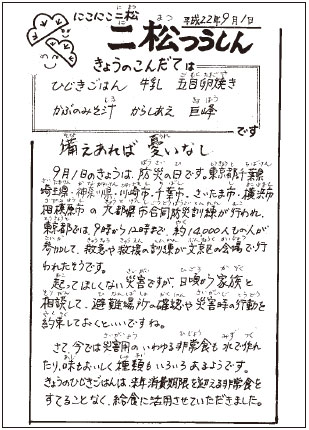 にこにこ二松
平成22年9月1日
二松つうしん
きょうのこんだては
ひじきごはん 牛乳 五目卵焼き
かぶのみそ汁 からしあえ 巨峰
です
備えあれば憂いなし
9月1日のきょうは、防災の日です。東京都、千葉県、
埼玉県・神奈川県・川崎市・千葉市・さいたま市・横浜市
相模原市の九都県市合同防災訓練が行われ、
東京都では、9時から12時まで、約14,000人もの人が
参加して、救急や救援の訓練が文京区の会場で行
われたそうです。
起ってほしくない災害ですが、日頃から家族と
相談して、避難場所の確認や災害時の行動を
約束しておくといいですね。
さて、今では災害用のいわゆる非常食も水で作れ
たり、味もおいしく種類もいろいろあるようです。
きょうのひじきごはんは、来年消費期限を迎える非常食を
すてることなく、給食に活用させていただきました。